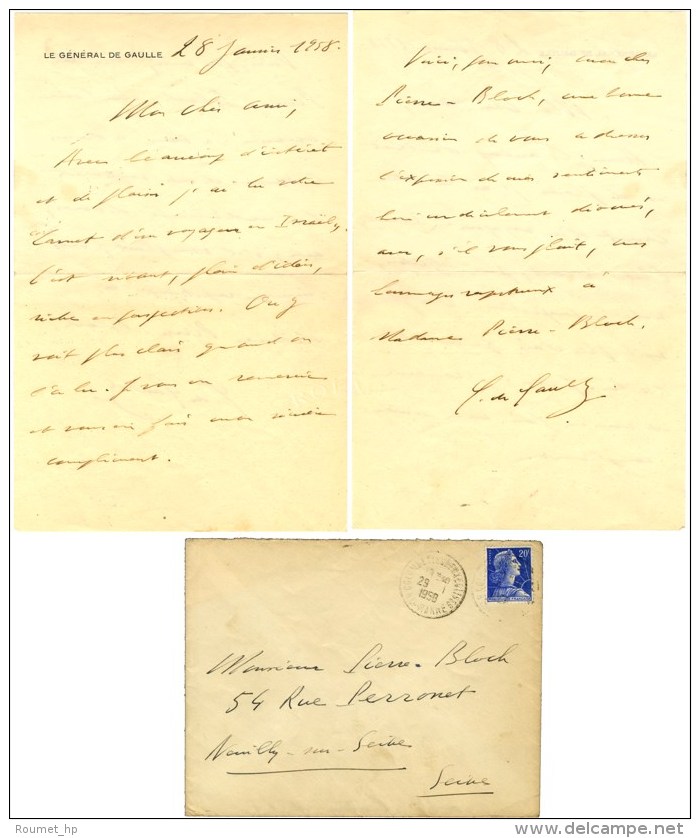 LE GÉNÉRAL DE GAULLE 28 Janvier 1958.
Mon cher ami,
Avec beaucoup d'intérêt
et de plaisir j'ai lu votre
"Carnet d'un voyageur en Israël".
C'est vivant, plein d'idées,
riche en perspectives. On y
voit plus clair quand on
l'a lu. Je vous en remercie
et vous en fais mon sincère
compliment.
Voici, pour moi, mon cher
Pierre-Bloch, une bonne
occasion de vous adresser
l'expression de mes sentiments
bien cordialement dévoués,
avec, s'il vous plaît, mes
hommages respectueux à
Madame Pierre-Bloch.
C. de Gaulle
29 - 1
1958
20F
Monsieur Pierre-Bloch
54 Rue Perronet
Neuilly-sur-Seine
Seine
Posted by Roumet_hp
http://www.delcampe.net